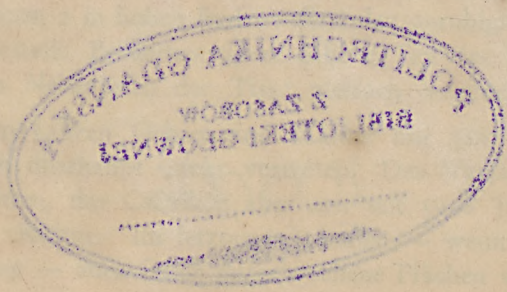 POLITECHNIKA GDAŃSKA
Z ZASOBÓW
BIBLIOTEKI GŁÓWNEJ